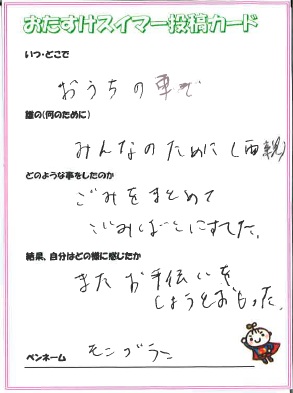 おたすけスイマー投稿カード
いつ・どこで
おうちの車で
誰の(何のために)
みんなのために(両親)
どのような事をしたのか
ごみをまとめて
ごみばこにすてた。
結果、自分はどの様に感じたか
また お手伝いを
しようとおもった。
ペンネーム
モンブラン